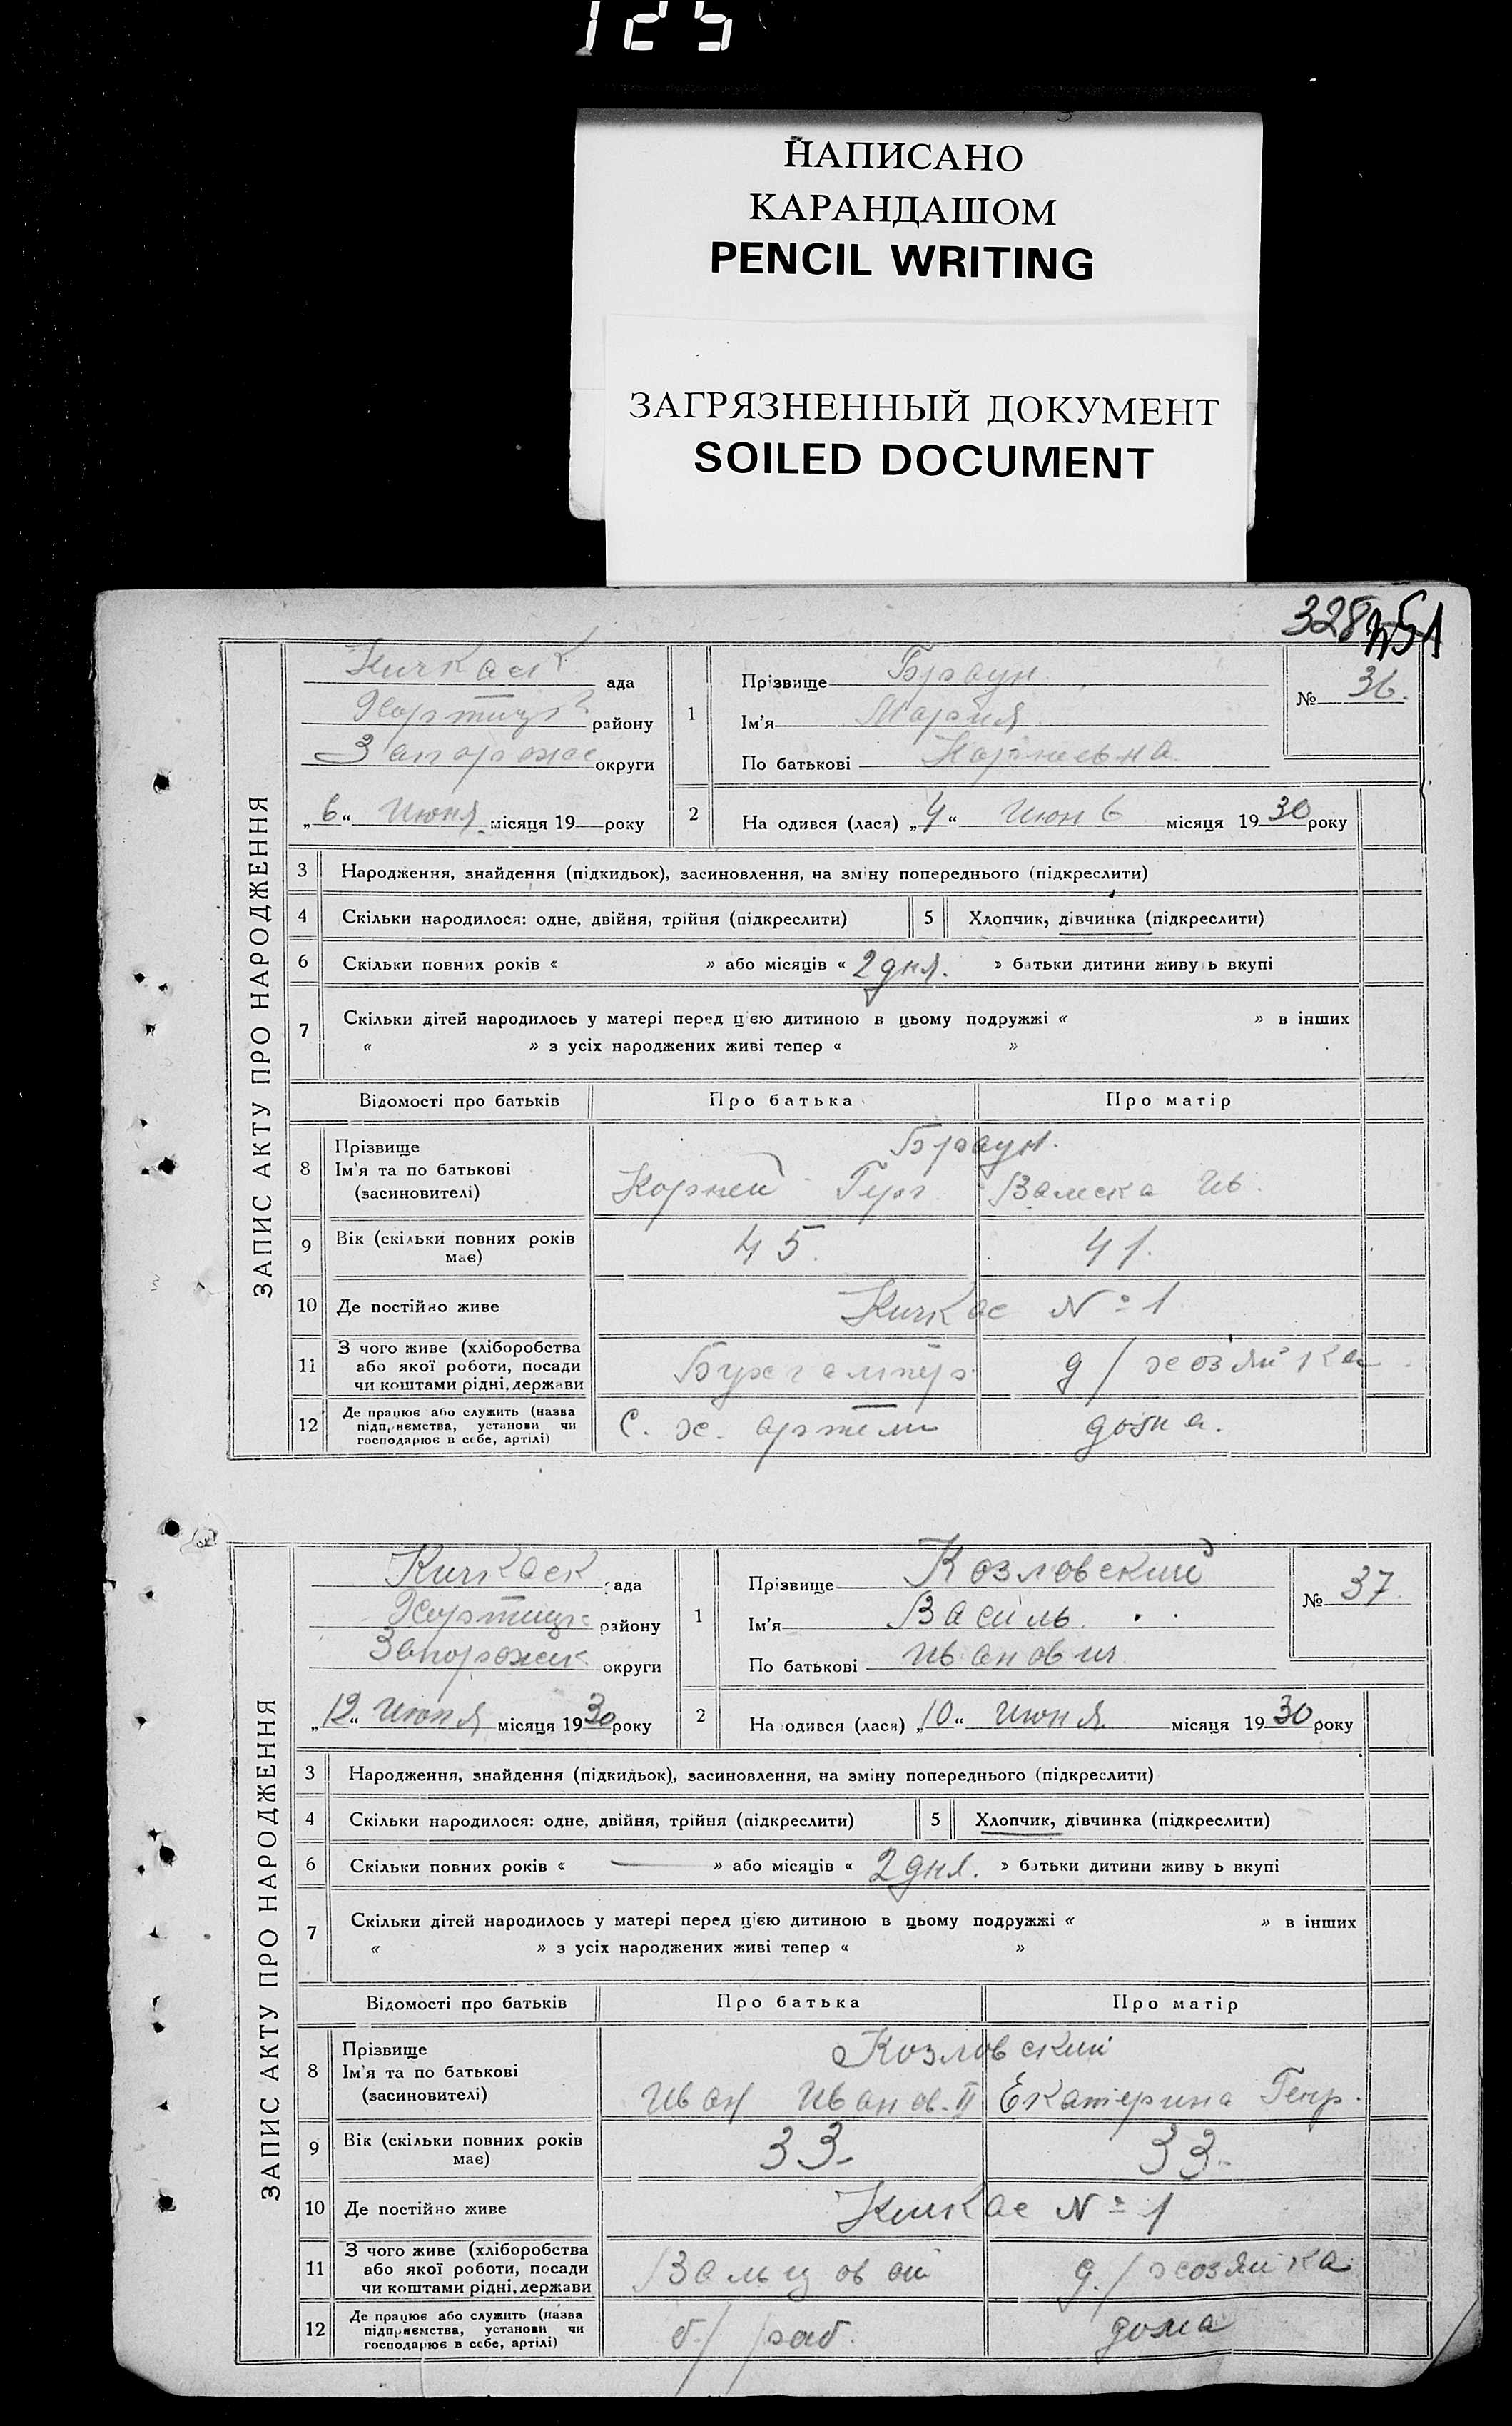 125
НАПИСАНО
КАРАНДАШОМ
PENCIL WRITING
ЗАГРЯЗНЕННЫЙ ДОКУМЕНТ
SOILED DOCUMENT
328 451
ЗАПИС АКТУ ПРО НАРОДЖЕННЯ
Кичкаск ада
Хортицк району
Запорожс округи
„6“ Июня місяця 19 року
1 Прізвище Браун
Ім’я Мария
По батькові Корнеевна
№ 36.
2 На одився (лася) „4“ Июня місяця 1930 року
3 Народження, знайдення (підкидьок), засиновлення, на зміну попереднього (підкреслити)
4 Скільки народилося: одне, двійня, трійня (підкреслити) 5 Хлопчик, дівчинка (підкреслити)
6 Скільки повних років « » або місяців « 2 дня. » батьки дитини живу ь вкупі
7 Скільки дітей народилось у матері перед цією дитиною в цьому подружжі « » в інших
« » з усіх народжених живі тепер « »
Відомості про батьків Про батька Про матір
8 Прізвище Браун.
Ім’я та по батькові Корней Ив.
(засиновителі)
9 Вік (скільки повних років має) 45. 41.
10 Де постійно живе Кичкас № 1
11 З чого живе (хліборобства
або якої роботи, посади Бухгалтер д/хозяйка
чи коштами рідні, держави
12 Де працює або служить (назва
підприємства, установи чи С. х. артели дома.
господарює в себе, артілі)
ЗАПИС АКТУ ПРО НАРОДЖЕННЯ
Кичкаск ада
Хортицк району
Запорожск округи
„12“ Июня місяця 1930 року
1 Прізвище Козловский
Ім’я Василь
По батькові Иванович
№ 37
2 На одився (лася) „10“ Июня місяця 1930 року
3 Народження, знайдення (підкидьок), засиновлення, на зміну попереднього (підкреслити)
4 Скільки народилося: одне, двійня, трійня (підкреслити) 5 Хлопчик, дівчинка (підкреслити)
6 Скільки повних років « — » або місяців « 2 дня. » батьки дитини живу ь вкупі
7 Скільки дітей народилось у матері перед цією дитиною в цьому подружжі « » в інших
« » з усіх народжених живі тепер « »
Відомості про батьків Про батька Про матір
8 Прізвище Козловский
Ім’я та по батькові Иван Иванов. II Екатерина Генр.
(засиновителі)
9 Вік (скільки повних років має) 33- 33-
10 Де постійно живе Кичкас № 1
11 З чого живе (хліборобства
або якої роботи, посади Вальцовой д./хозяйка
чи коштами рідні, держави
12 Де працює або служить (назва
підприємства, установи чи б/раб. дома
господарює в себе, артілі)